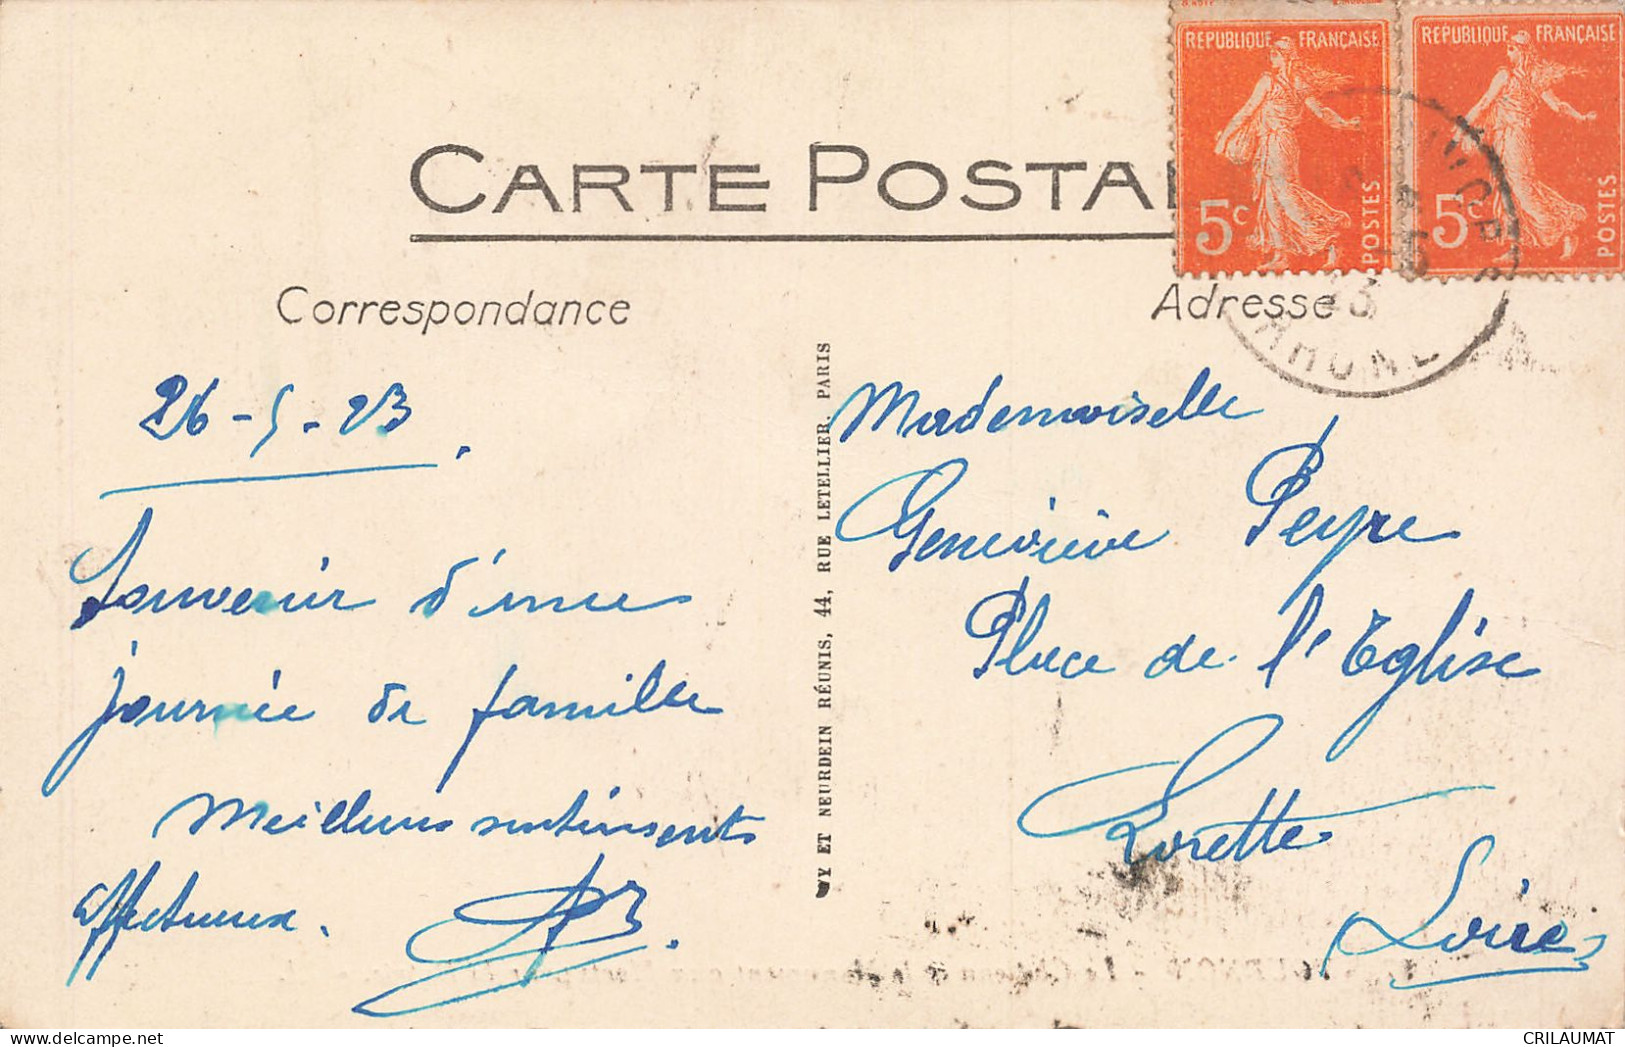 RÉPUBLIQUE FRANÇAISE
5c
POSTES
RÉPUBLIQUE FRANÇAISE
5c
POSTES
CARTE POSTA
RHONE
Correspondance
Adresse
26-5-23.
Souvenir d'une
journée de famille
Meilleurs sentiments
affectueux.
Y ET NEURDEIN RÉUNIS, 44, RUE LETELLIER, PARIS
Mademoiselle
Geneviève Peyre
Place de l'Eglise
Lorette
Loire
CRILAUMAT